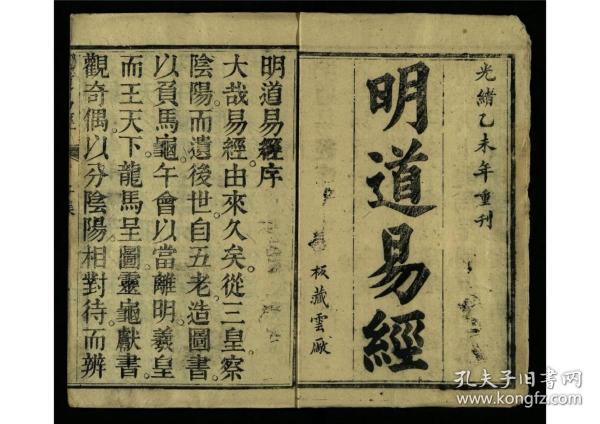 光緒乙未年重刊
明道易經
板藏雲廠
明道易經序
大哉易經由來久矣。從三皇察
陰陽。而遺後世自五老。造圖書。
以負馬龜。午會以當離明。羲皇
而王天下。龍馬呈圖。靈龜獻書。
觀奇偶。以分陰陽。相對待而辨
孔夫子旧书网
www.kongfz.com